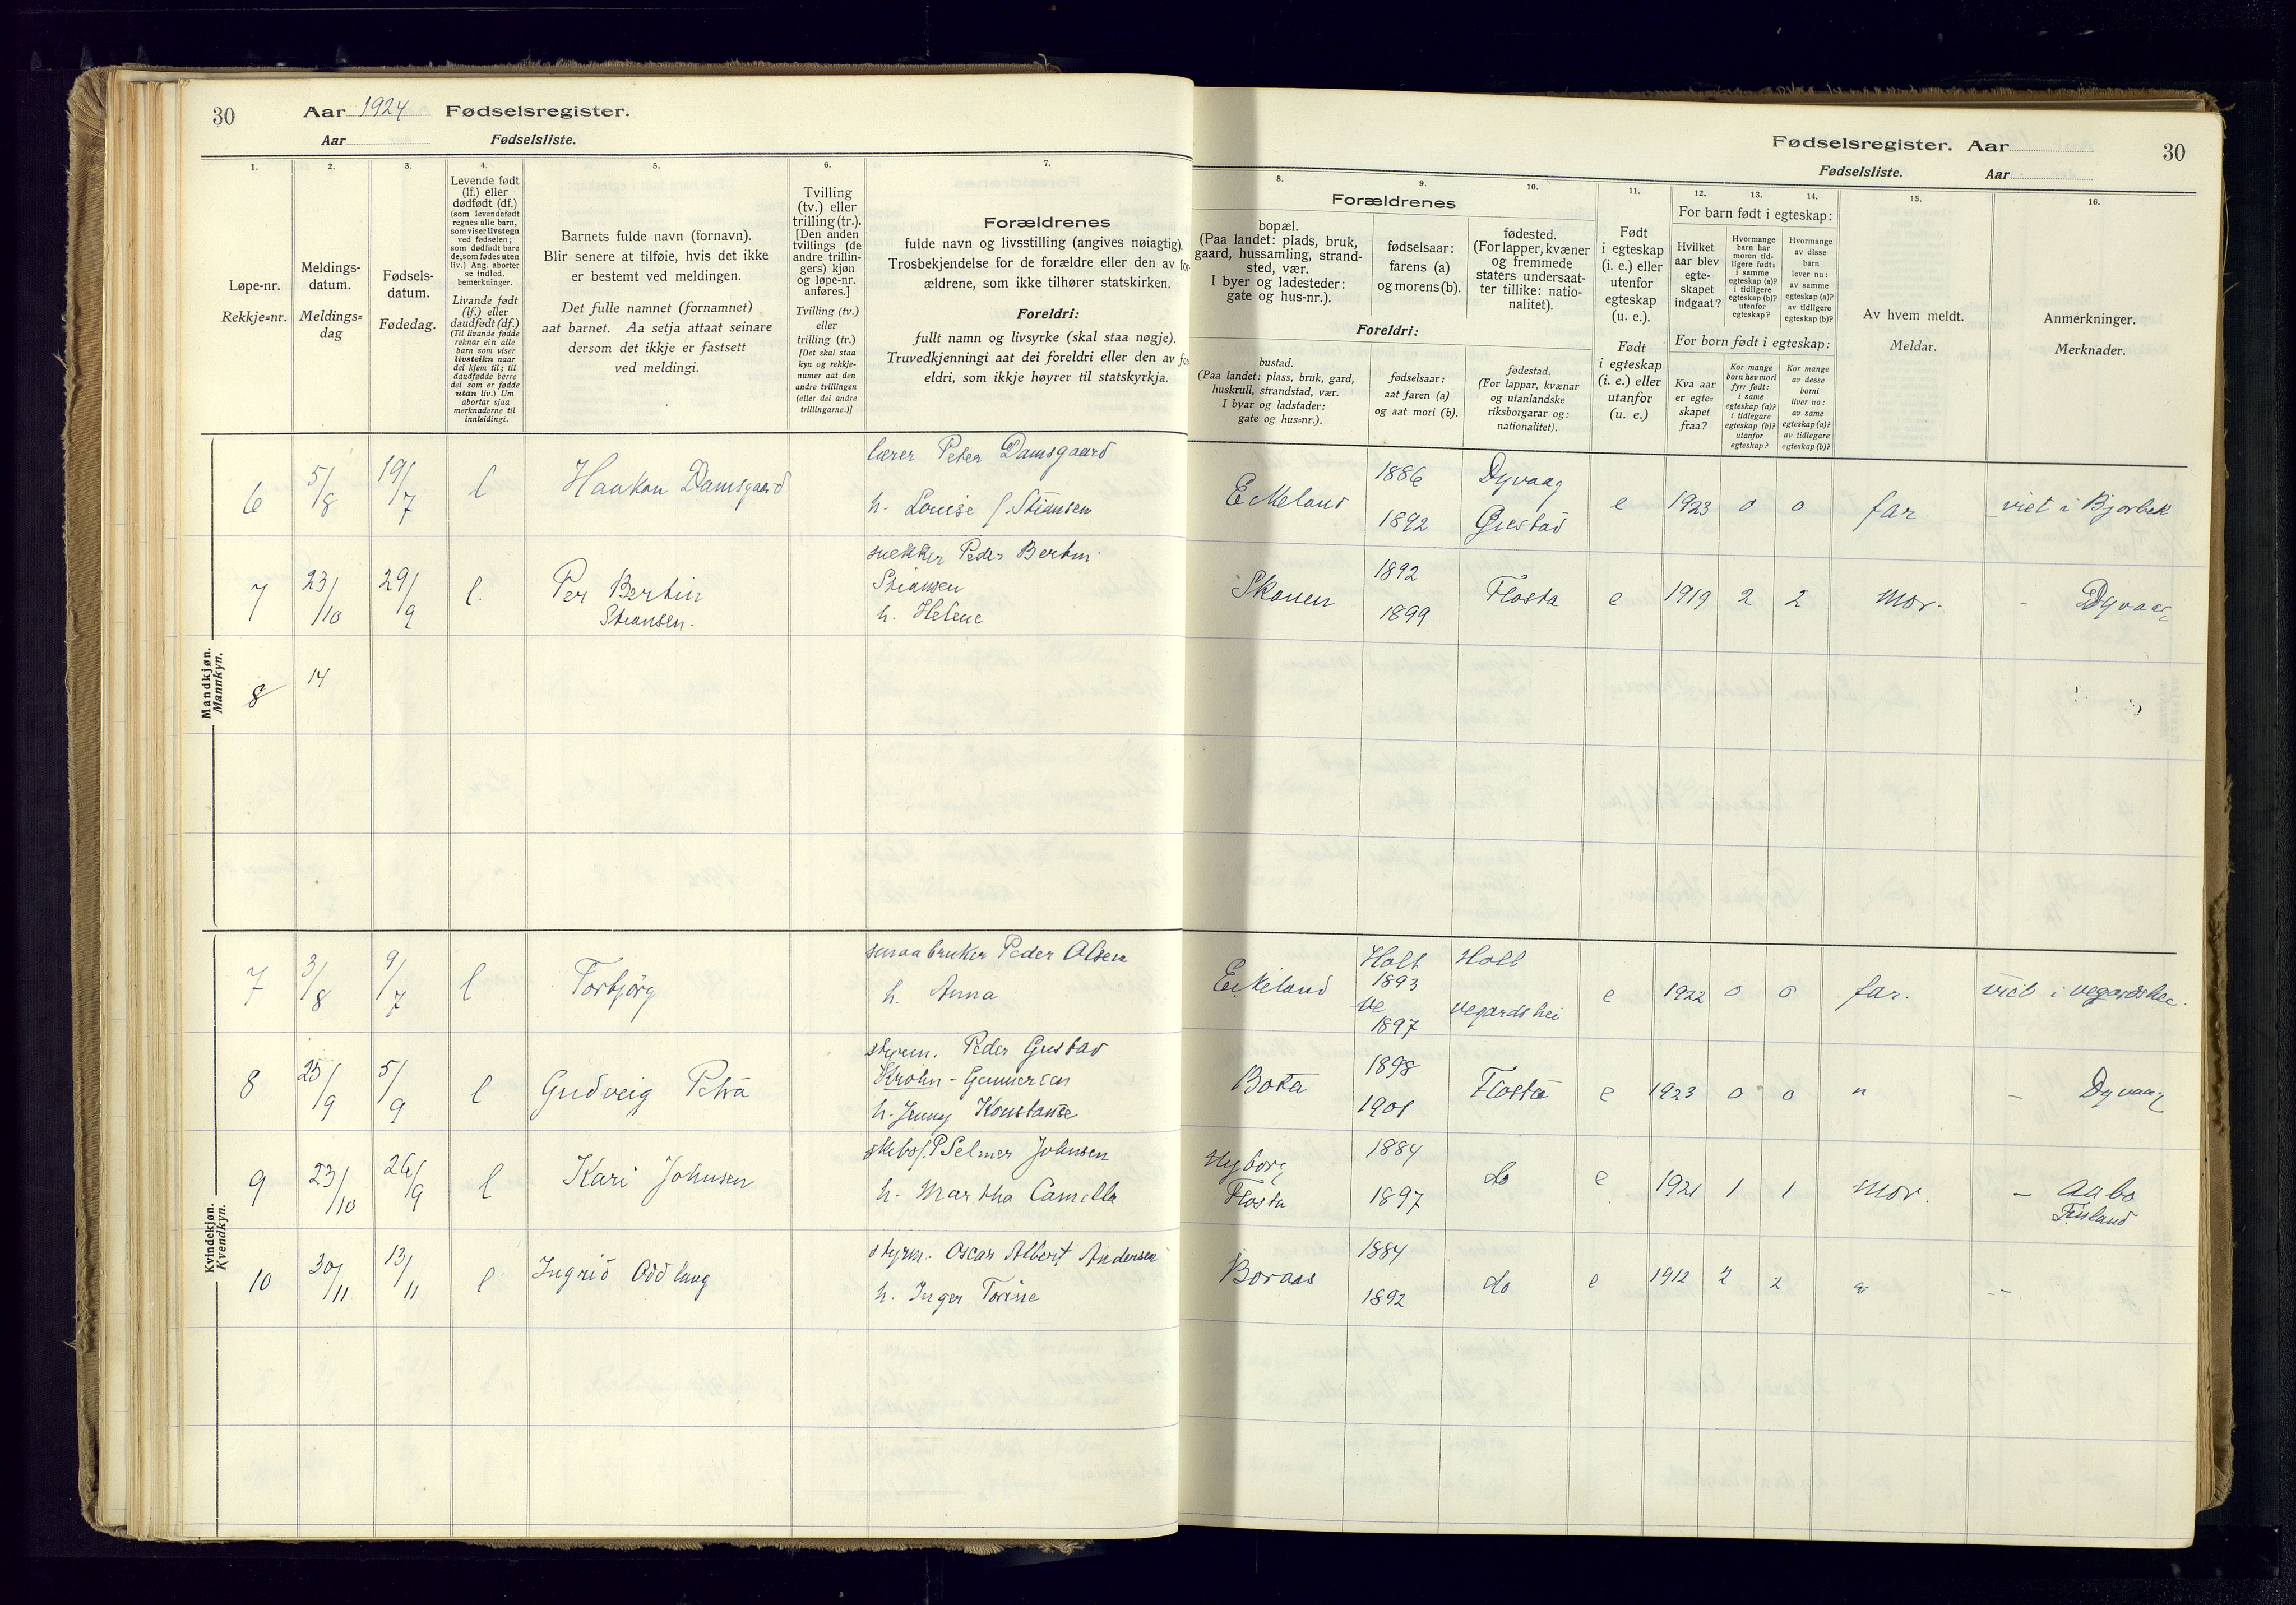 30 Aar 1924 Fødselsregister.
Aar Fødselsliste.
1. 2. 3. 4. 5. 6. 7.
Løpe-nr.
Rekkje=nr.
Meldings-
datum.
Meldings=
dag
Fødsels-
datum.
Fødedag.
Levende født
(lf.) eller
dødfødt (df.)
(som levendefødt
regnes alle barn,
som viser livstegn
ved fødselen;
som dødfødt bare
de, som fødes uten
liv.) Ang. aborter
se indled.
bemerkninger.
Livande født
(lf.) eller
daudfødt (df.)
(Til livande fødde
reknar ein alle
barn som viser
livsteikn naar
dei kjem til; til
daudfødde berre
dei som er fødde
utan liv.) Um
abortar sjaa
merknaderne til
innleidingi.
Barnets fulde navn (fornavn).
Blir senere at tilføie, hvis det ikke
er bestemt ved meldingen.
Det fulle namnet (fornamnet)
aat barnet. Aa setja attaat seinare
dersom det ikkje er fastsett
ved meldingi.
Tvilling
(tv.) eller
trilling (tr.).
[Den anden
tvillings (de
andre trillin-
gers) kjøn
og løpe-nr.
anføres.]
Tvilling (tv.)
eller
trilling (tr.)
[Det skal staa
kyn og rekkje-
numer aat den
andre tvillingen
(eller dei andre
trillingarne.)]
Forældrenes
fulde navn og livsstilling (angives nøiagtig).
Trosbekjendelse for de forældre eller den av for-
ældrene, som ikke tilhører statskirken.
Foreldri:
fullt namn og livsyrke (skal staa nøgje).
Truvedkjenningi aat dei foreldri eller den av
eldri, som ikkje høyrer til statskyrkja.
Mandkjøn.
Mannkyn.
6 5/8 19/7 l Haakon Damsgaard
lærer Peter Damsgaard
h. Louise f. Stiansen
7 23/10 29/9 l. Per Bertin
Stiansen.
snekker Peder Bertin
Stiansen
h. Helene
8 14
Kvindekjøn.
Kvendkyn.
7 3/8 9/7 l Torbjörg
smaabruker Peder Olsen
h. Anna
8 25/9 5/9 l Gudveig Petra
styrm. Peder Gustav
Krohn-Gunnersen
h. Jenny Konstanse
9 23/10 26/9 l Kari Johnsen
P Selmer Johnsen
h. Martha Camilla
10 30/11 13/11 l Ingrid Oddlaug
styrm. Oscar Albert Andersen
h. Inger Torine
Fødselsregister. Aar 30
Fødselsliste. Aar
8. 9. 10. 11. 12. 13. 14. 15. 16.
Forældrenes
bopæl.
(Paa landet: plads, bruk,
gaard, hussamling, strand-
sted, vær.
I byer og ladesteder:
gate og hus-nr.).
fødselsaar:
farens (a)
og morens (b).
fødested.
(For lapper, kvæner
og fremmede
staters undersaat-
ter tillike: natio-
nalitet).
Foreldri:
bustad.
(Paa landet: plass, bruk, gard,
huskrull, strandstad, vær.
I byar og ladstader:
gate og hus=nr.).
fødselsaar:
aat faren (a)
og aat mori (b).
fødestad.
(For lappar, kvænar
og utanlandske
riksborgarar og:
nationalitet).
Født
i egteskap
(i. e.) eller
utenfor
egteskap
(u. e.).
Født
i egteskap
(i. e.) eller
utanfor
(u. e.)
For barn født i egteskap:
Hvilket
aar blev
egte-
skapet
indgaat?
Hvormange
barn har
moren tid-
ligere født:
i samme
egteskap (a)?
i tidligere
egteskap (b)?
utenfor
egteskap?
Hvormange
av disse
barn
lever nu:
av samme
egteskap (a)?
av tidligere
egteskap (b)?
For born født i egteskap:
Kva aar
er egte=
skapet
fraa?
Kor mange
born hev mori
fyrr født:
i same
egteskap (a)?
i tidlegare
egteskap (b)?
utanfor
egteskap?
Kor mange
av desse
borni
liver no:
av same
egteskap (a)?
av tidlegare
egteskap (b)?
Av hvem meldt.
Meldar.
Anmerkninger.
Merknader.
1886 Dyvaag
Eikeland e 1923 0 0 far viet i
1892 Gjestad
1892
Skonen Flosta e 1919 2 2 mor. - Dyvaag
1899
Holt Holt
1893
Eikeland e 1922 0 0 far. viet i vegardshei.
ve vegardshei
1897
1898
Bota Flosta e 1923 0 0 " - Dyvaag
1901
1884
Flosta 1897 do e 1921 1 1 mor. - Aabo
Finland
1884
Boraas do e 1912 2 2 " --
1892